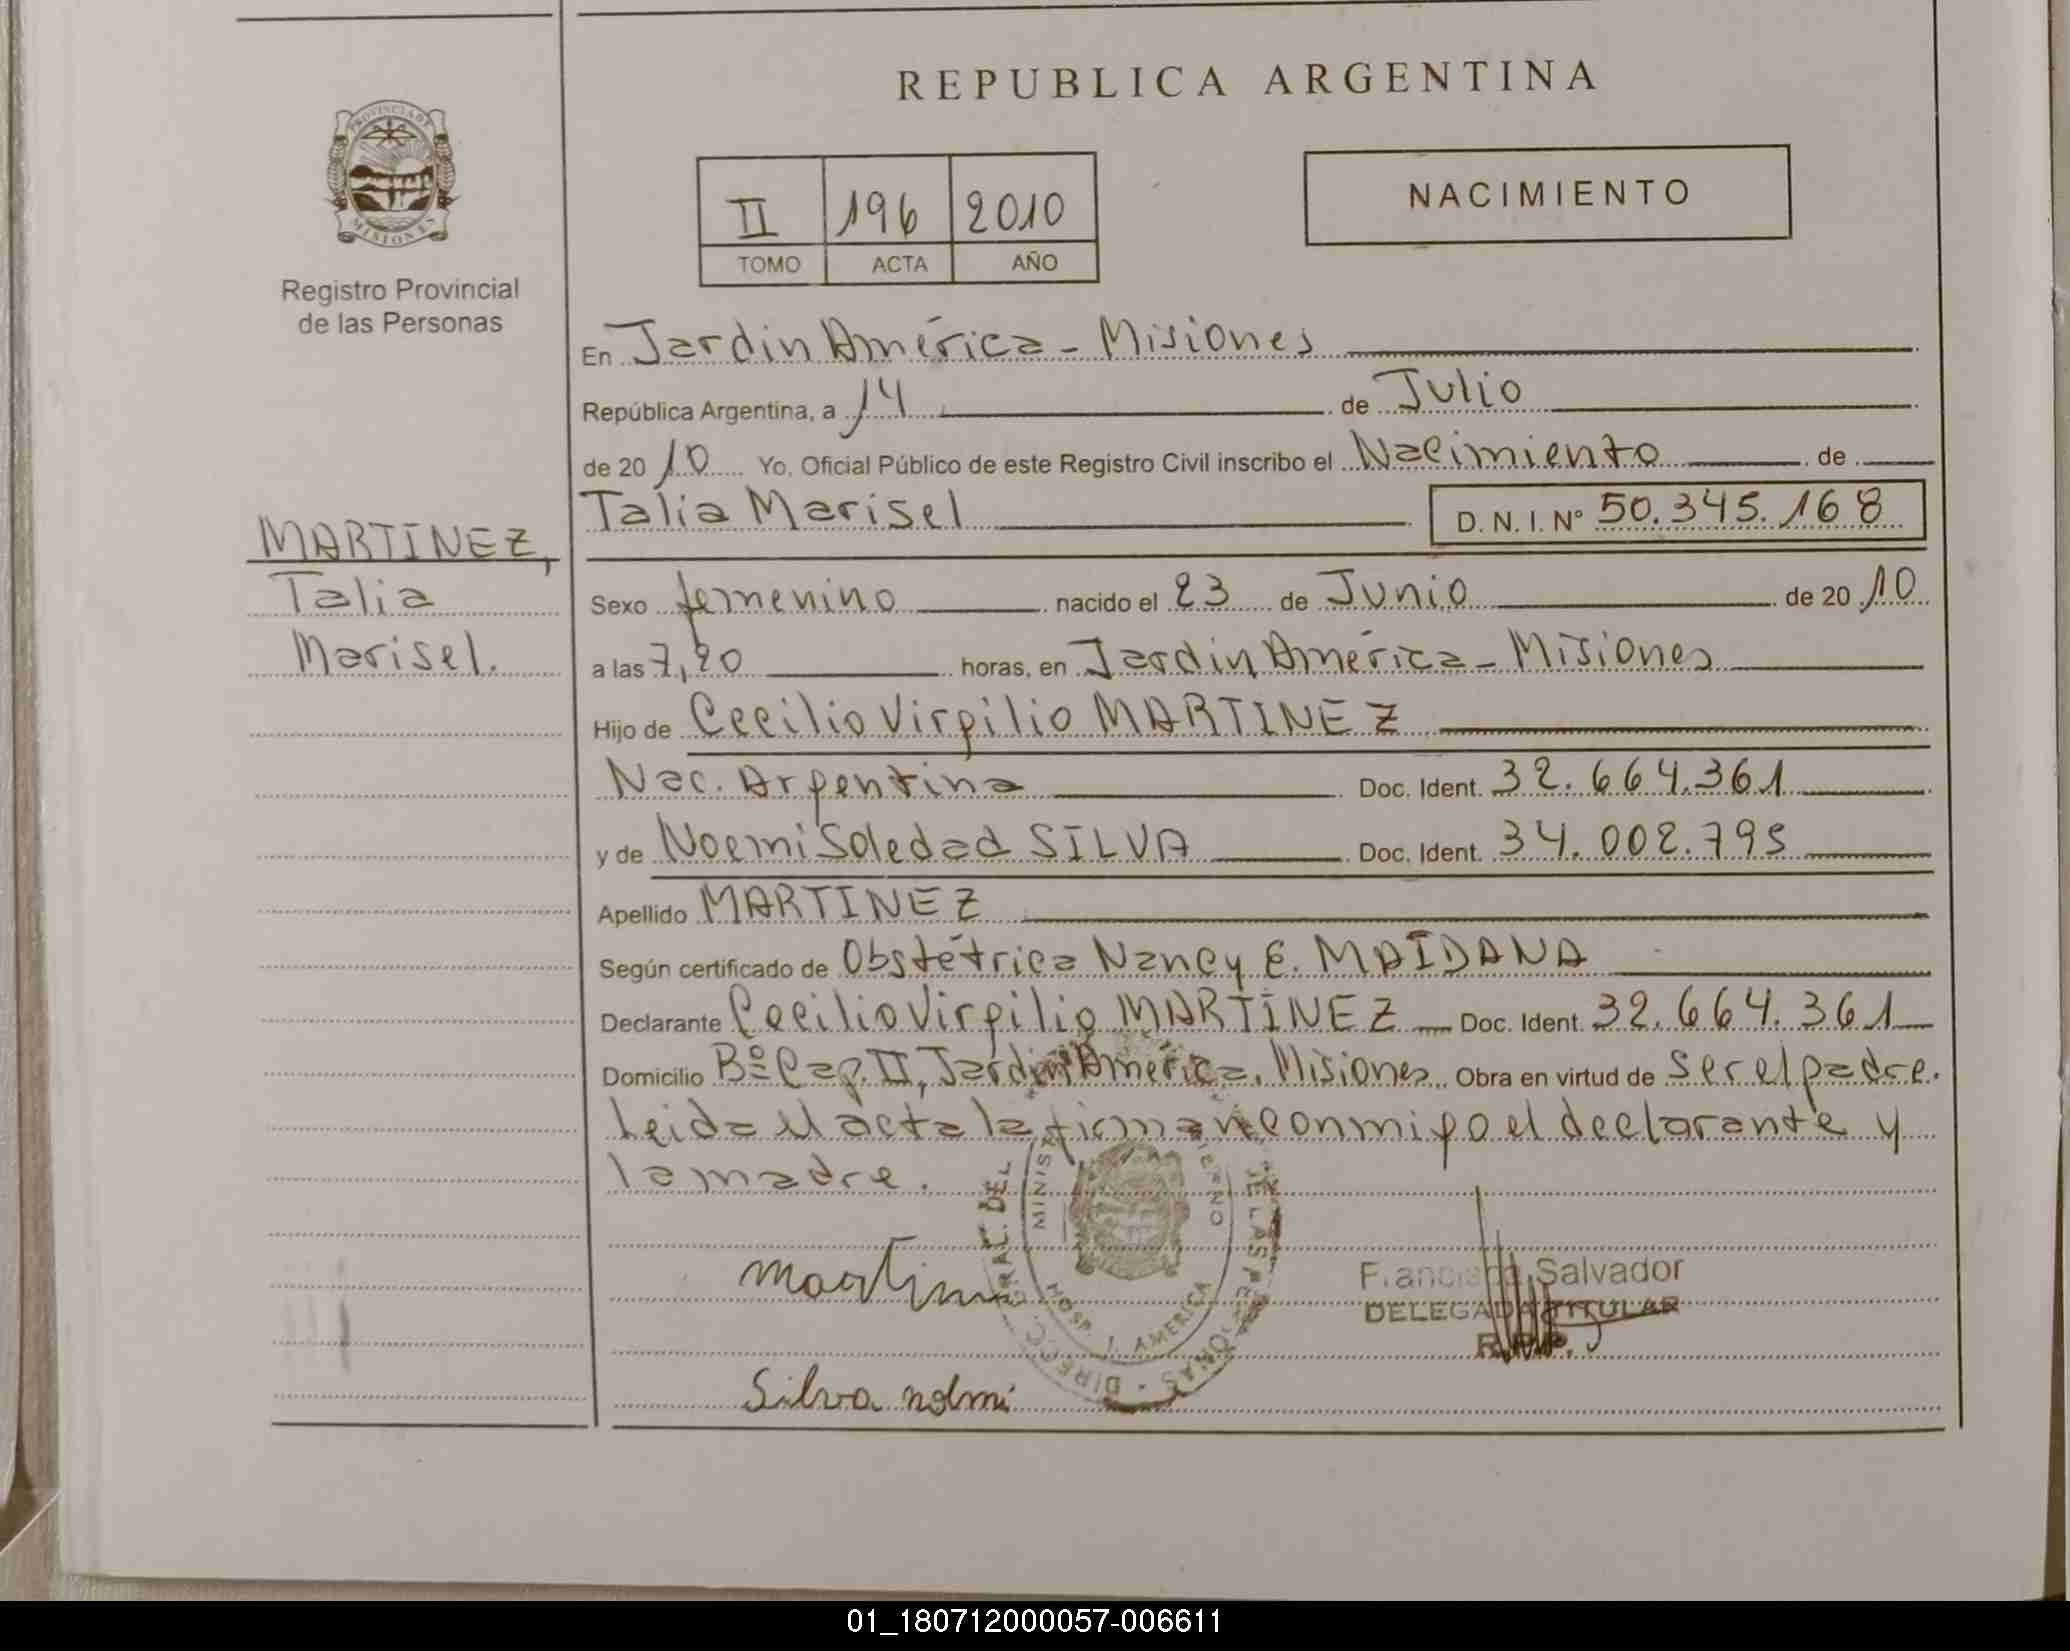 REPUBLICA ARGENTINA
PROVINCIA DE
MISIONES
Registro Provincial
de las Personas
II 196 2010
TOMO ACTA AÑO
NACIMIENTO
MARTINEZ,
Talia
Marisel.
En Jardin América - Misiones
República Argentina, a 14 de Julio
de 20 10 Yo, Oficial Público de este Registro Civil inscribo el Nacimiento de
Talia Marisel D. N. I. Nº 50.345.168
Sexo femenino nacido el 23 de Junio de 20 10
a las 7,20 horas, en Jardin América - Misiones
Hijo de Cecilio Virgilio MARTINEZ
Nac. Argentina Doc. Ident. 32.664.361
y de Noemi Soledad SILVA Doc. Ident. 34.002.795
Apellido MARTINEZ
Según certificado de Obstétrica Nancy E. MAIDANA
Declarante Cecilio Virgilio MARTINEZ Doc. Ident. 32.664.361
Domicilio Bº Cap. II, Jardin América. Misiones Obra en virtud de ser el padre.
Leida el acta la firman conmigo el declarante y
la madre.
DIRECC. GRAL. DEL DE LAS PERSONAS
HOSP. J. AMERICA
Francisca Salvador
DELEGADA TITULAR
R.P.P.
Silva noemi
01_180712000057-006611